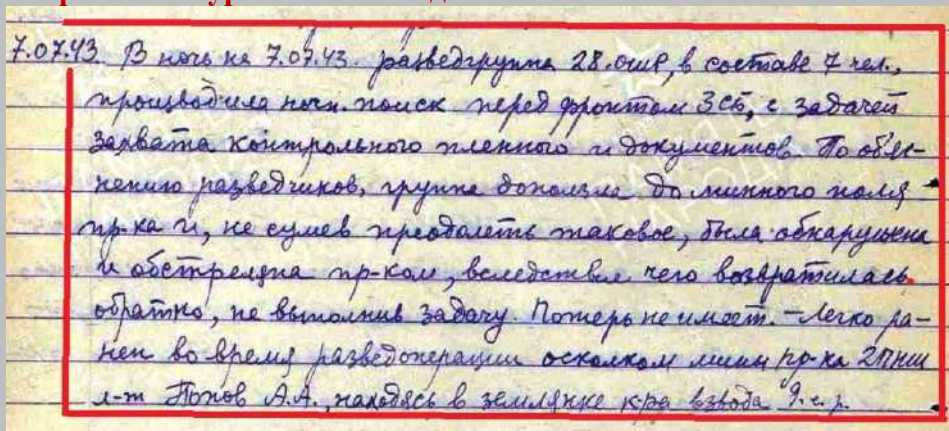 7.07.43 В ночь на 7.07.43. разведгруппа 28.ошр, в составе 7 чел.,
производила ночн. поиск перед фронтом 3СБ, с задачей
захвата контрольного пленного и документов. По объяс-
нению разведчиков, группа доползла до минного поля
пр-ка и, не сумев преодолеть таковое, была обнаружена
и обстреляна пр-ком, вследствие чего возвратилась
обратно, не выполнив задачу. Потерь не имеет. - Легко ра-
нен во время разведоперации осколком мины пр-ка 2ПНШ
л-т Попов А.А., находясь в землянке к-ра взвода 9.с.р.